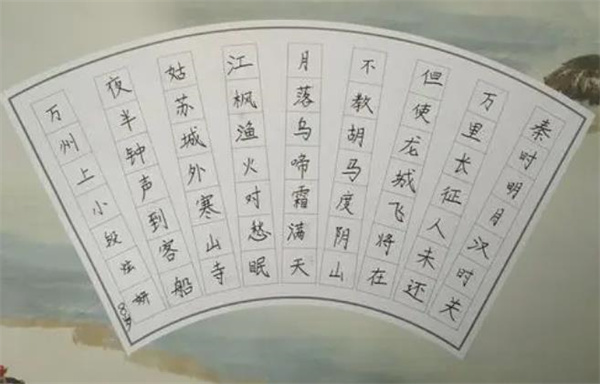 秦时明月汉时关
万里长征人未还
但使龙城飞将在
不教胡马度阴山
月落乌啼霜满天
江枫渔火对愁眠
姑苏城外寒山寺
夜半钟声到客船
万州上小段妍 8岁